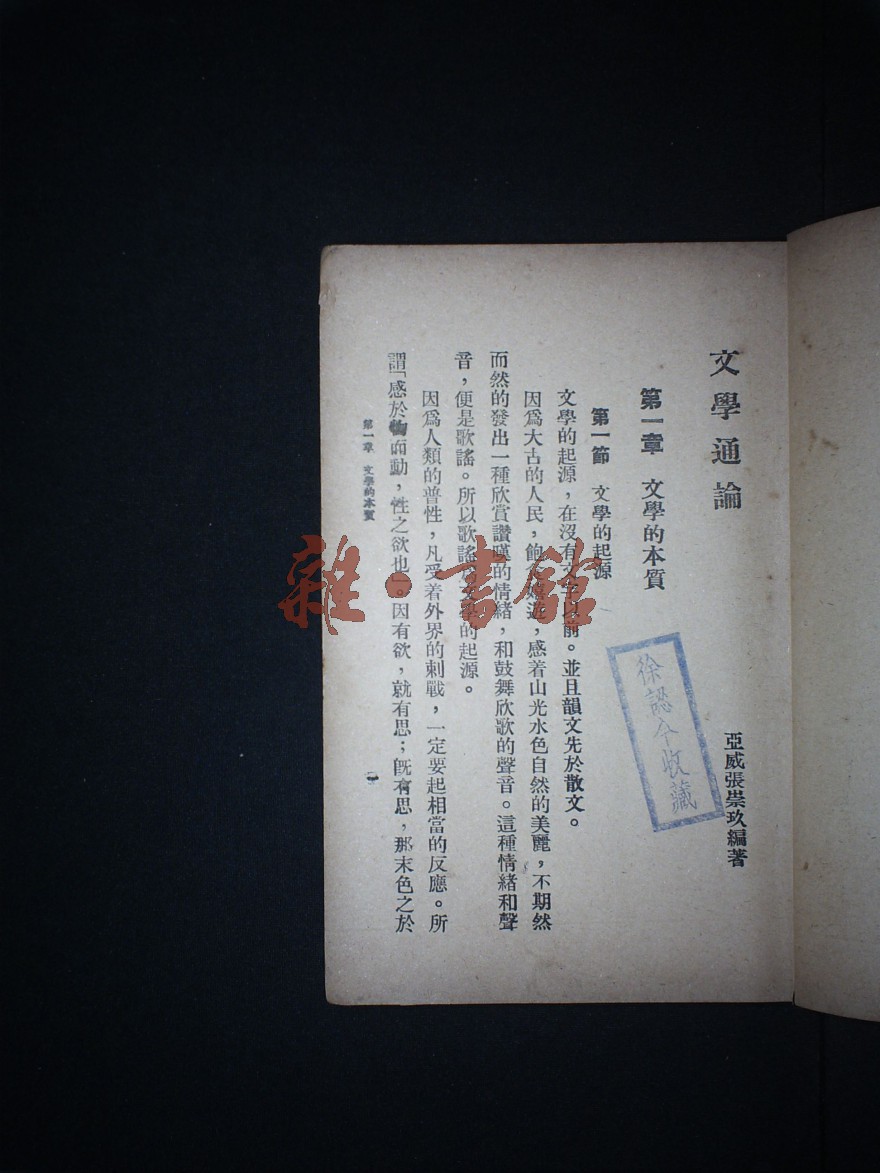 文學通論
亞威張崇玖編著
第一章　文學的本質
第一節　文學的起源
文學的起源，在沒有文字以前。並且韻文先於散文。
因爲大古的人民，飽食嬉遊，感着山光水色自然的美麗，不期然
而然的發出一種欣賞讚嘆的情緒，和鼓舞欣歌的聲音。這種情緒和聲
音，便是歌謠。所以歌謠是文學的起源。
因爲人類的普性，凡受着外界的刺戰，一定要起相當的反應。所
謂「感於物而動，性之欲也」。因有欲，就有思；既有思，那末色之於
第一章　文學的本質
一
徐　今收藏
雜·書館